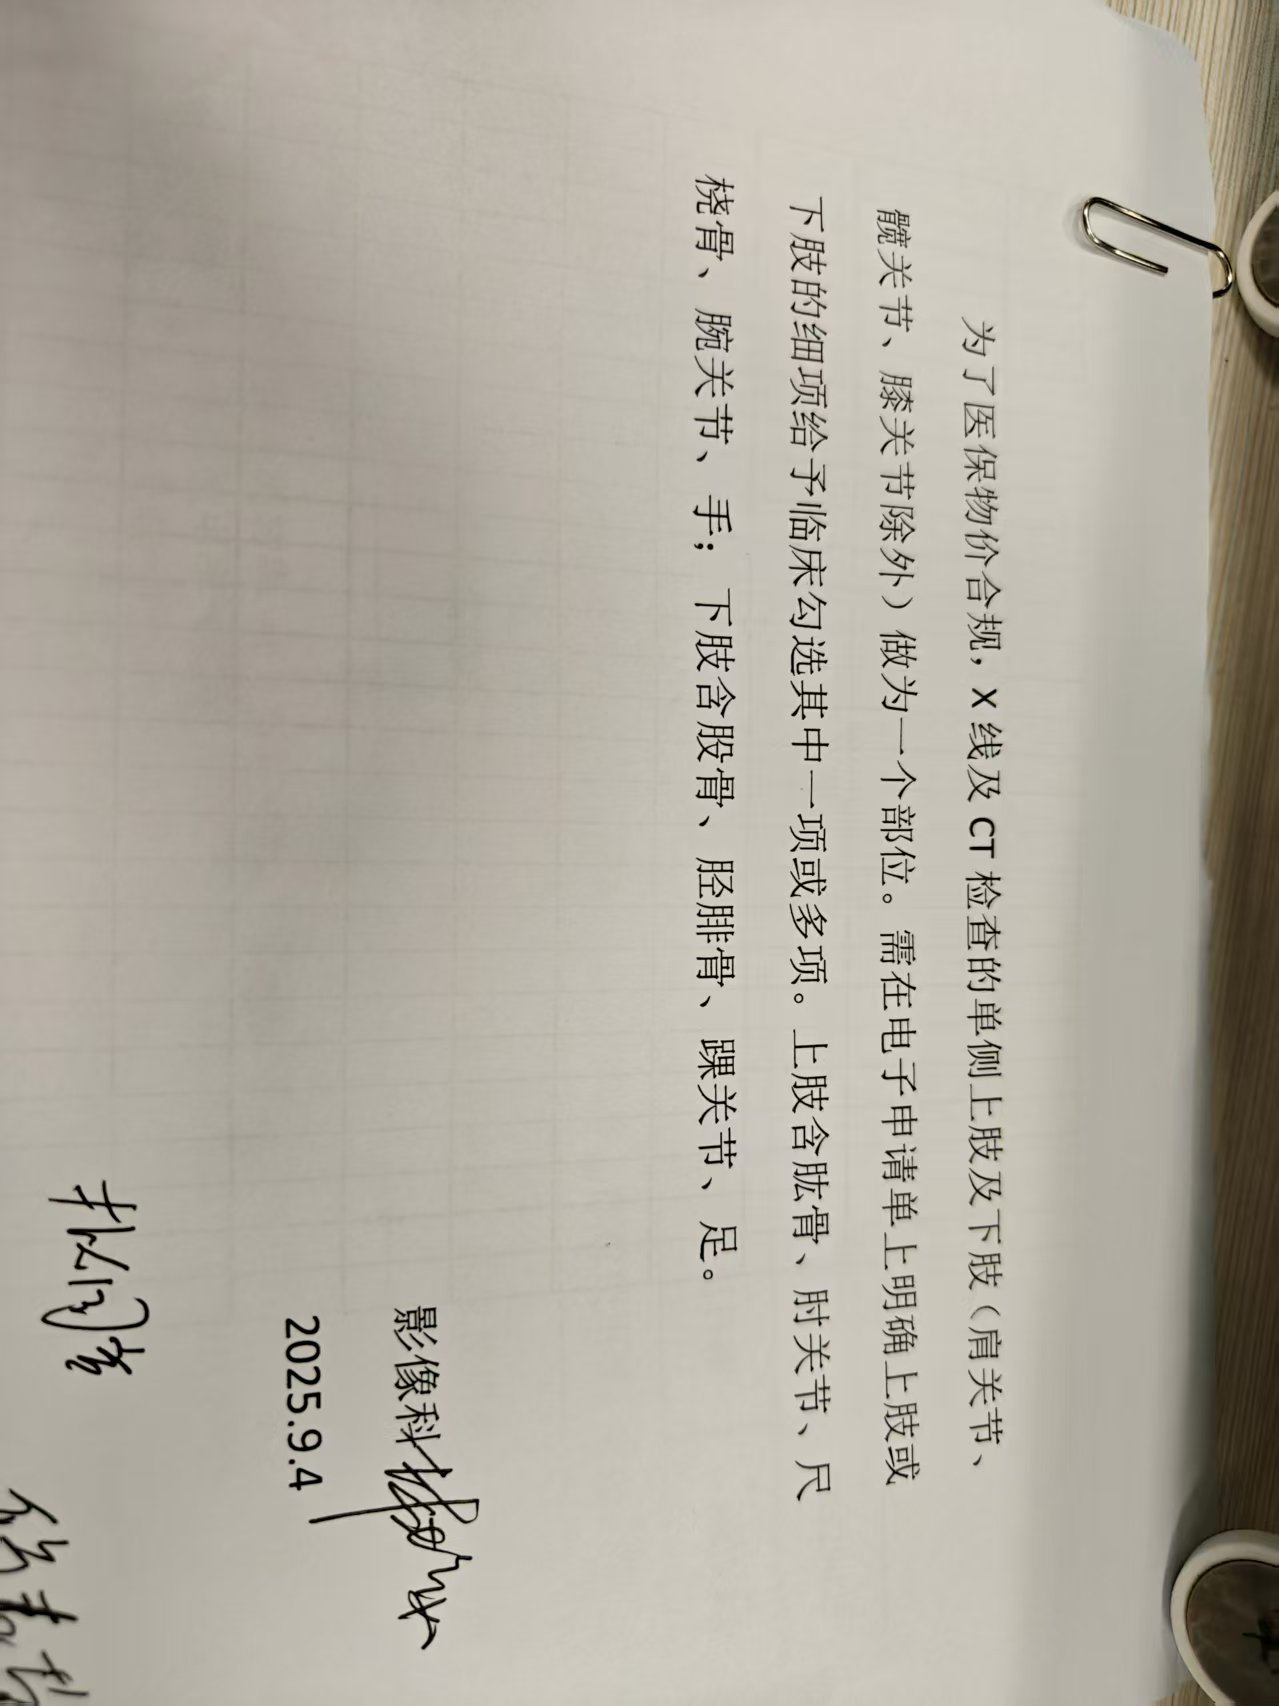 为了医保物价合规，X 线及 CT 检查的单侧上肢及下肢（肩关节、
髋关节、膝关节除外）做为一个部位。需在电子申请单上明确上肢或
下肢的细项给予临床勾选其中一项或多项。上肢含肱骨、肘关节、尺
桡骨、腕关节、手；下肢含股骨、胫腓骨、踝关节、足。
影像科
2025.9.4